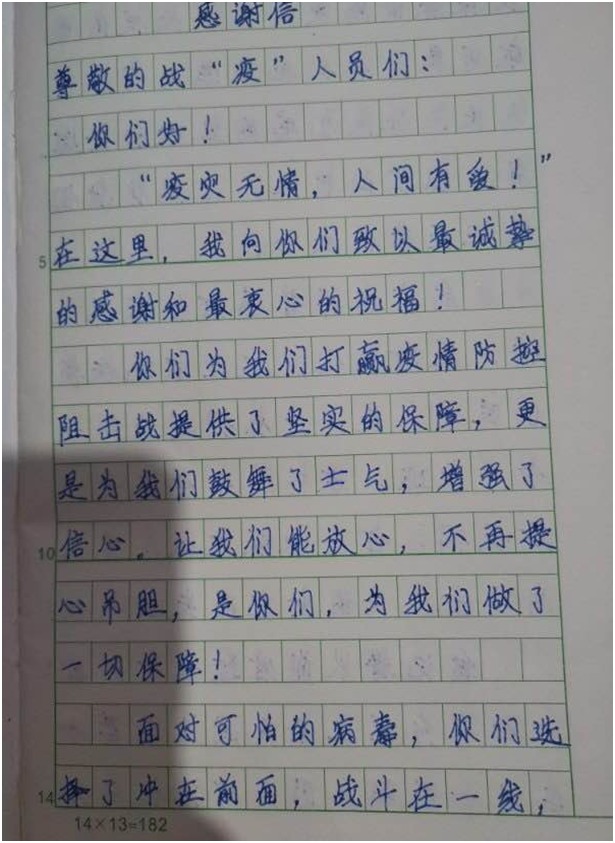 感谢信
尊敬的战“疫”人员们：
你们好！
“疫灾无情，人间有爱！”
5 在这里，我向你们致以最诚挚
的感谢和最衷心的祝福！
你们为我们打赢疫情防控
阻击战提供了坚实的保障，更
是为我们鼓舞了士气，增强了
10 信心。让我们能放心，不再提
心吊胆，是你们，为我们做了
一切保障！
面对可怕的病毒，你们选
14 择了冲在前面，战斗在一线，
14×13=182